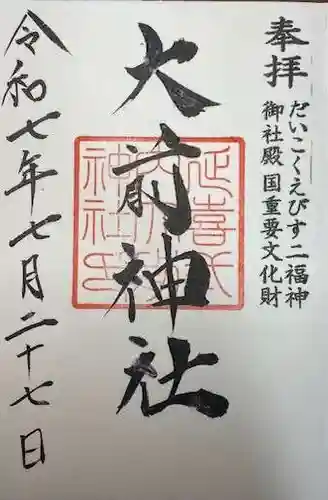 奉拝
だいこくえびす二福神
御社殿国重要文化財
大前神社
延喜式
内大前
神社印
令和七年七月二十七日